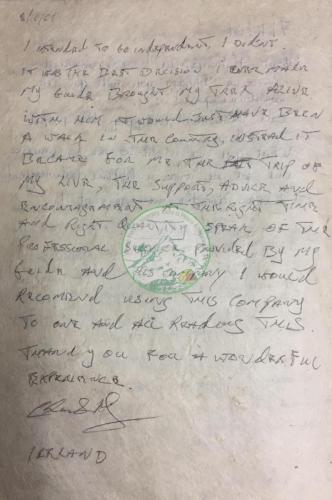 I intended to go independent, I didn't.
It was the best decision I ever made
My guide brought my trek alive
with him it would just have been
a walk in the country, instead it
became for me the trip of
my live, the support, advice and
encouragement at the right time
and right quantity speak of the
professional service provided by my
guide and his company I would
recomend using this company
to one and all reading this.
Thank you for a wonderful
experience.
Ireland